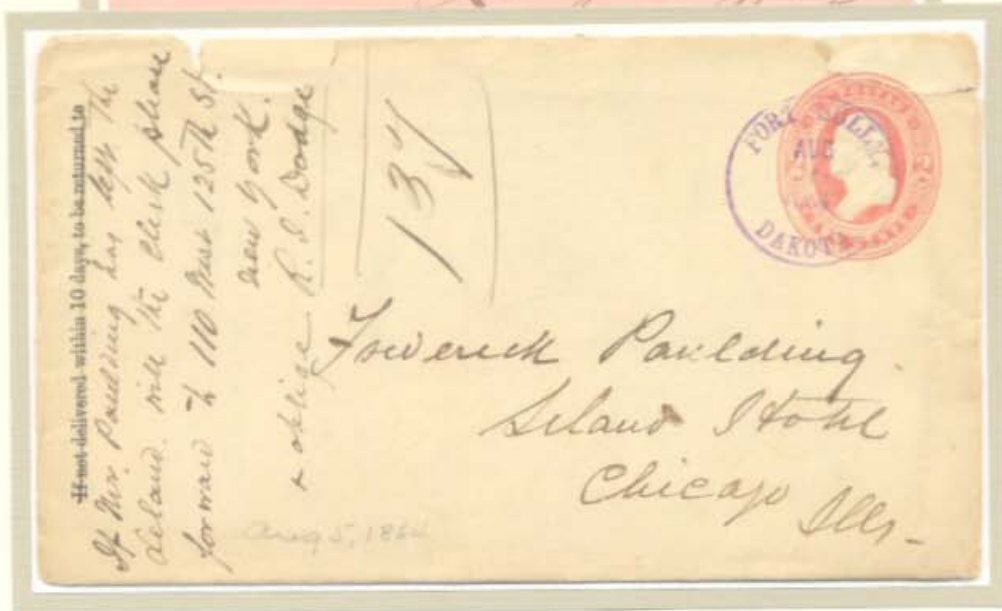 If not delivered within 10 days, to be returned to
If Mr. Paulding has left the
Leland will the clerk please
forward to 110 West 125th St.
New York.
& oblige R. I. Dodge
137
FORT SULLY,
AUG
DAKOTA
Frederick Paulding.
Leland Hotel
Chicago
Ills-
Aug 5, 188